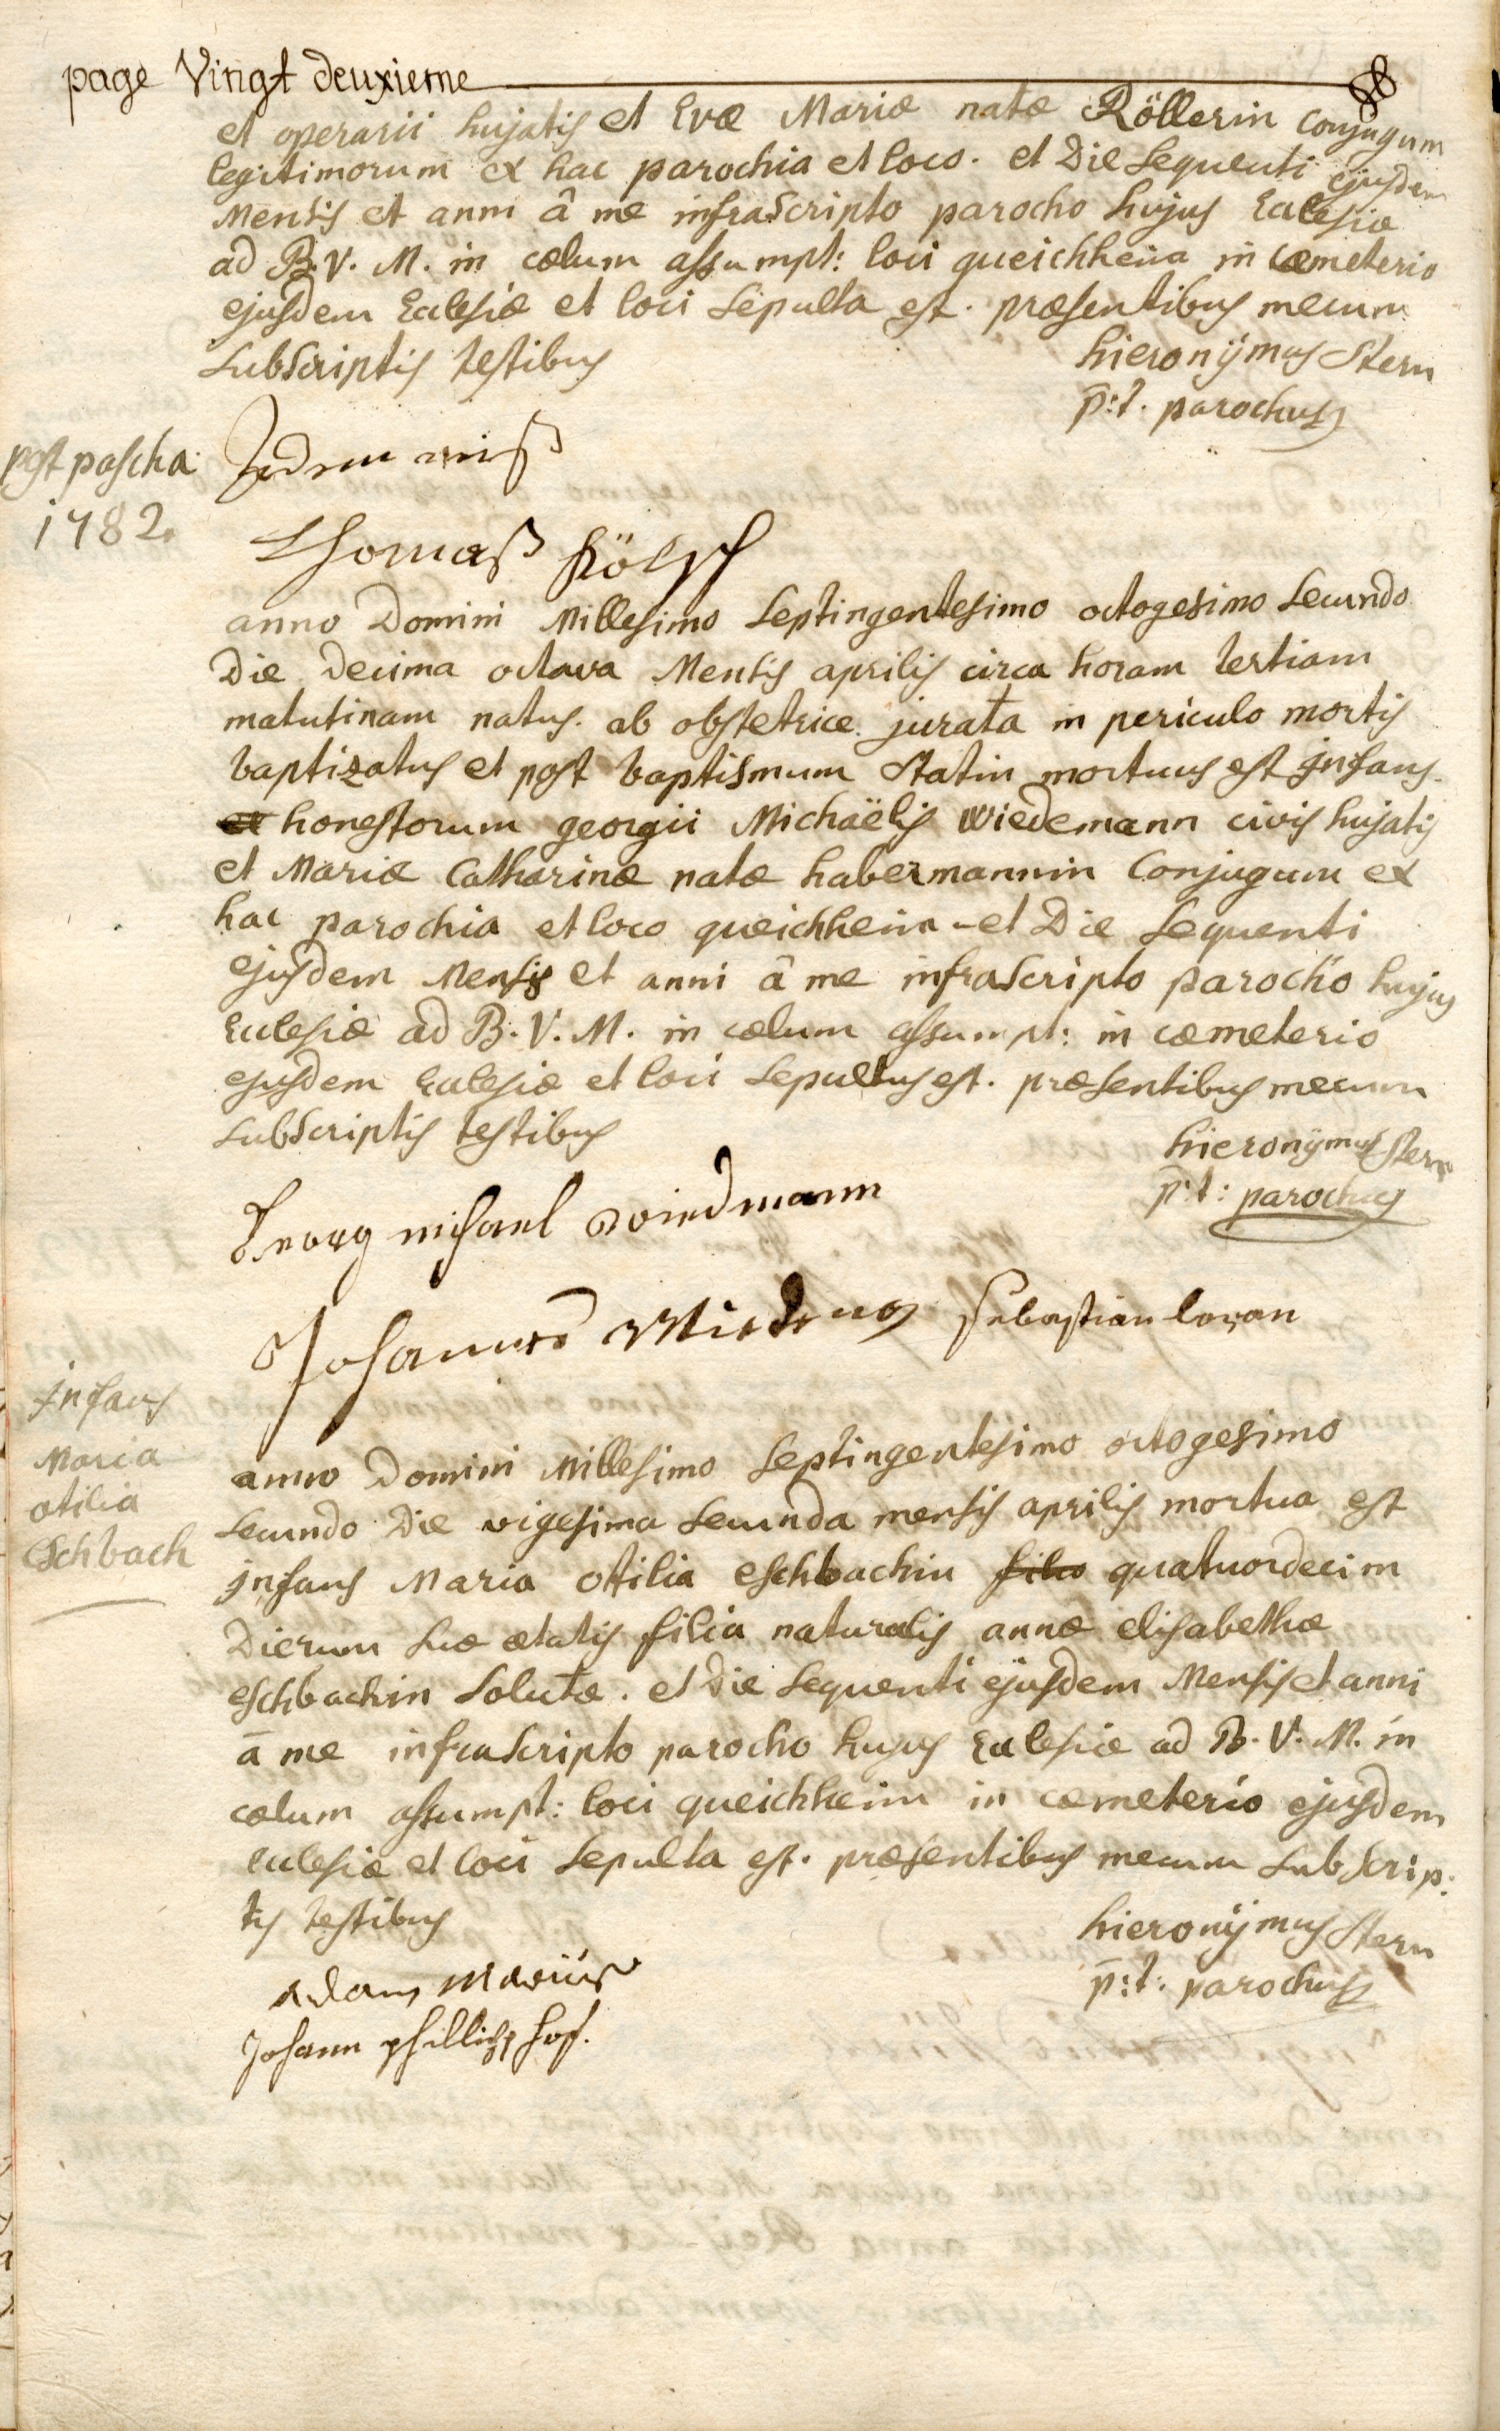 page Vingt deuxieme
et operarii hujatis et Evæ Mariæ natæ Röllerin conjugum
legitimorum ex hac parochia et loco. et Die sequenti ejusdem
Mensis et anni â me infrascripto parocho hujus Ecclesiæ
ad B. V. M. in cœlum assumpt: loci queichheim in cœmeterio
ejusdem Ecclesiæ et loci sepulta est. præsentibus mecum
subscriptis testibus
hieronÿmus Stern
p:t. parochus
post pascha
1782.
Thomaß
anno Domini Millesimo septingentesimo octogesimo secundo
Die decima octava Mensis aprilis circa horam tertiam
matutinam natus. ab obstetrice jurata in periculo mortis
baptizatus et post baptismum statim mortuus est jnfans
honestorum georgii Michaëlis Wiedemann civis hujatis
et Mariæ Catharinæ natæ habermannin Conjugum ex
hac parochia et loco queichheim - et Die sequenti
ejusdem Mensis et anni â me infrascripto parocho hujus
Ecclesiæ ad B. V. M. in cœlum assumpt: in cœmeterio
ejusdem Ecclesiæ et loci sepultus est. præsentibus mecum
subscriptis testibus
hieronÿmus Stern
p:t: parochus
Georg michael Wiedmann
Johannes sebastian
jnfans
Maria
otilia
Eschbach
anno Domini Millesimo septingentesimo octogesimo
secundo Die vigesima secunda mensis aprilis mortua est
jnfans Maria otilia eschbachin filia quatuordecim
Dierum suæ ætatis filia naturalis annæ elisabethæ
eschbachin solutæ. et Die sequenti ejusdem Mensis et anni
â me infrascripto parocho hujus Ecclesiæ ad B. V. M. in
cœlum assumpt: loci queichheim in cœmeterio ejusdem
ecclesiæ et loci sepulta est. præsentibus mecum subscrip:
tis testibus
hieronÿmus Stern
p:t: parochus
adam
Johann phillipp hoff.